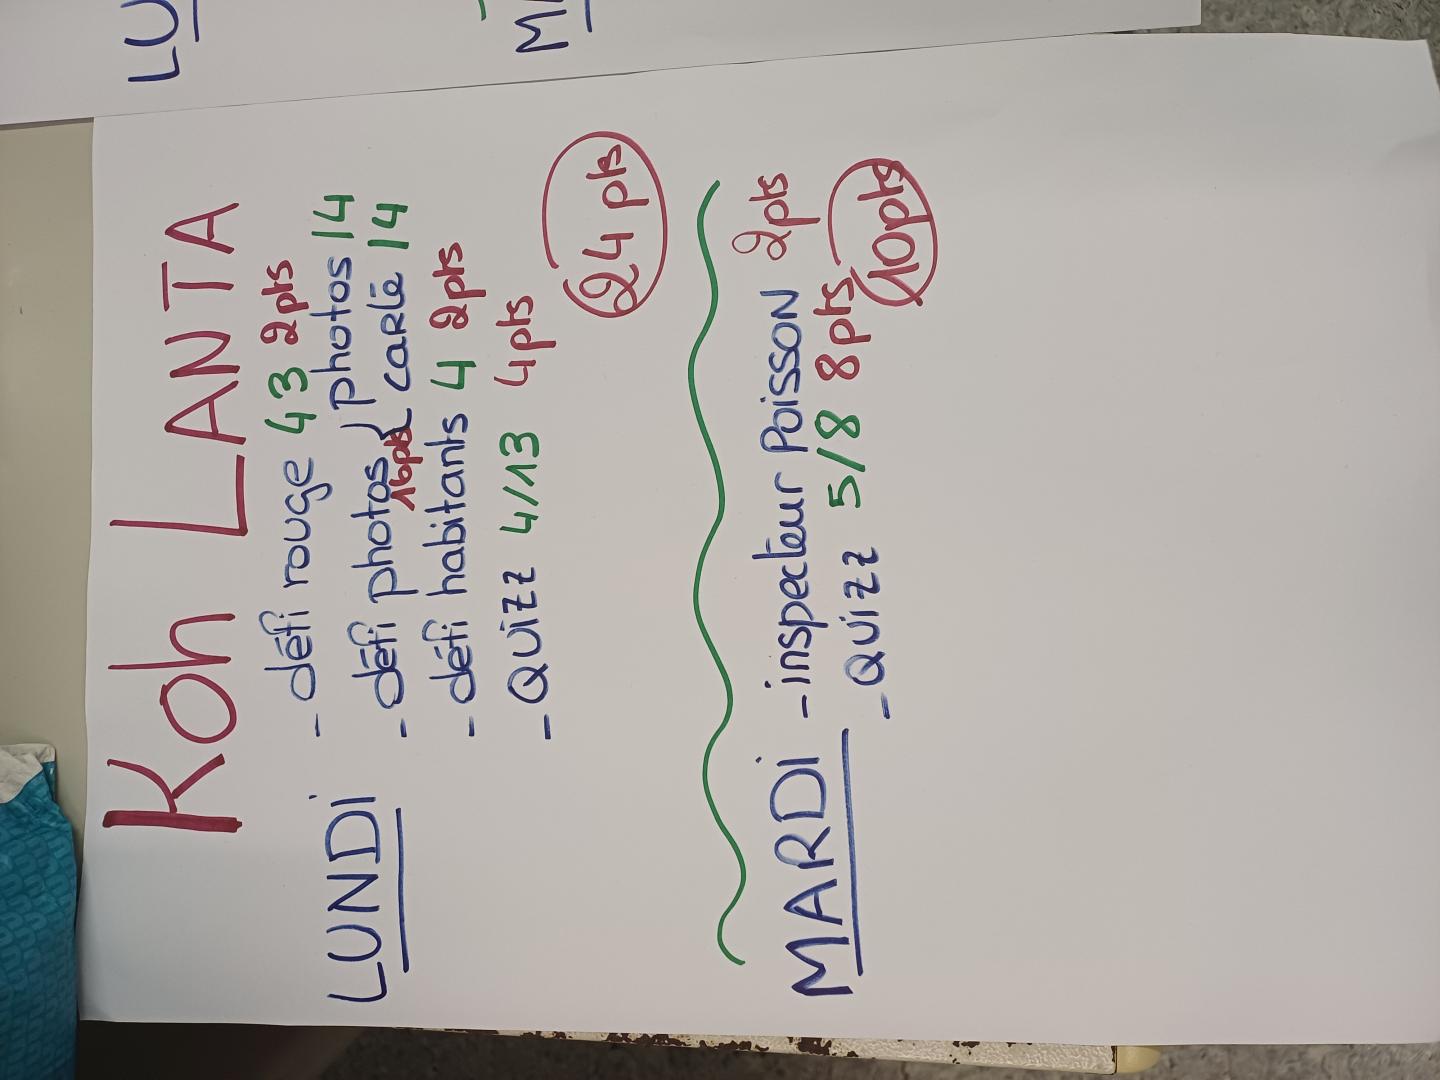 LU
M
Koh LANTA
LUNDi
- défi rouge 43 2pts
- défi photos { photos 14
carte 14
16pts
- défi habitants 4 2pts
- Quizz 4/13 4pts
24 pts
MARDi
- inspecteur Poisson 2pts
- Quizz 5/8 8pts
10pts